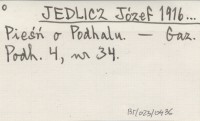 JEDLICZ Józef 1916...
Pieśń o Podhalu. — Gaz.
Podh. 4, nr 34.